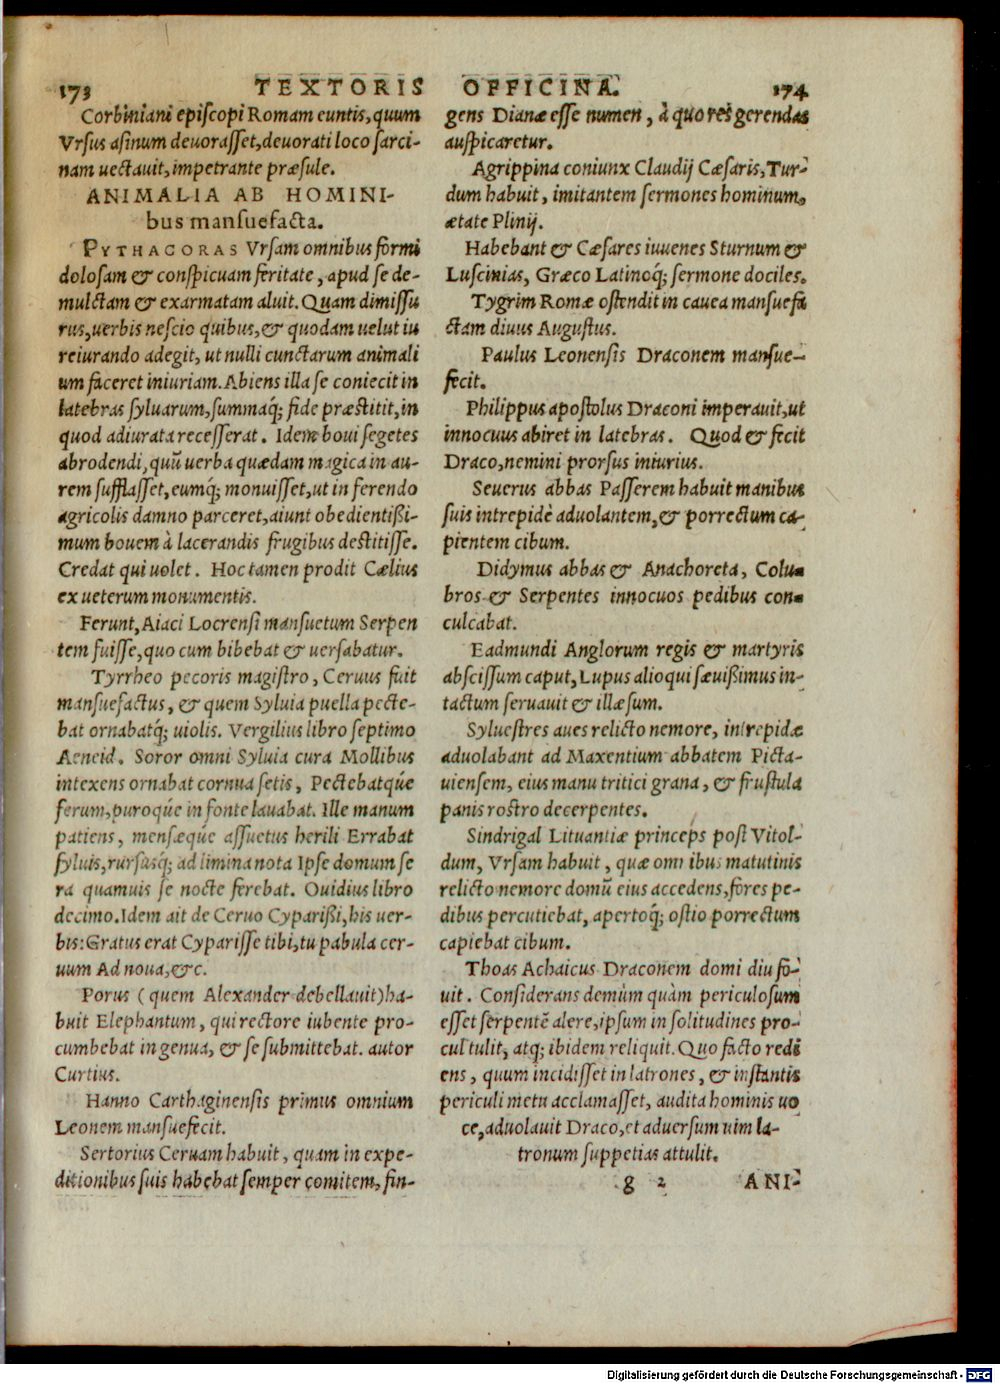 173 TEXTORIS OFFICINA. 174
Corbiniani episcopi Romam euntis, quum
Vrsus asinum deuorasset, deuorati loco sarci-
nam uectauit, impetrante præsule.
ANIMALIA AB HOMINI-
bus mansuefacta.
PYTHAGORAS Vrsam omnibus formi
dolosam & conspicuam feritate, apud se de-
mulctam & exarmatam aluit. Quam dimissu
rus, uerbis nescio quibus, & quodam uelut iu
reiurando adegit, ut nulli cunctarum animali
um faceret iniuriam. Abiens illa se coniecit in
latebras syluarum, summaq; fide præstitit, in
quod adiurata recesserat. Idem boui segetes
abrodendi, quū uerba quædam magica in au-
rem sufflasset, eumq; monuisset, ut in ferendo
agricolis damno parceret, aiunt obedientißi-
mum bouem à lacerandis frugibus destitisse.
Credat qui uolet. Hoc tamen prodit Cælius
ex ueterum monumentis.
Ferunt, Aiaci Locrensi mansuetum Serpen
tem fuisse, quo cum bibebat & uersabatur.
Tyrrheo pecoris magistro, Ceruus fuit
mansuefactus, & quem Syluia puella pecte-
bat ornabatq; uiolis. Vergilius libro septimo
Aeneid. Soror omni Syluia cura Mollibus
intexens ornabat cornua setis, Pectebatq́ue
ferum, puroq́ue in fonte lauabat. Ille manum
patiens, mensæq́ue assuetus herili Errabat
syluis, rursusq; ad limina nota Ipse domum se
ra quamuis se nocte ferebat. Ouidius libro
decimo. Idem ait de Ceruo Cyparißi, his uer-
bis: Gratus erat Cyparisse tibi, tu pabula cer-
uum Ad noua, &c.
Porus (quem Alexander debellauit) ha-
buit Elephantum, qui rectore iubente pro-
cumbebat in genua, & se submittebat. autor
Curtius.
Hanno Carthaginensis primus omnium
Leonem mansuefecit.
Sertorius Ceruam habuit, quam in expe-
ditionibus suis habebat semper comitem, fin-
gens Dianæ esse numen, à quo res gerendas
auspicaretur.
Agrippina coniunx Claudij Cæsaris, Tur-
dum habuit, imitantem sermones hominum,
ætate Plinij.
Habebant & Cæsares iuuenes Sturnum &
Luscinias, Græco Latinoq; sermone dociles.
Tygrim Romæ ostendit in cauea mansuefa
ctam diuus Augustus.
Paulus Leonensis Draconem mansue-
fecit.
Philippus apostolus Draconi imperauit, ut
innocuus abiret in latebras. Quod & fecit
Draco, nemini prorsus iniurius.
Seuerus abbas Passerem habuit manibus
suis intrepidè aduolantem, & porrectum ca-
pientem cibum.
Didymus abbas & Anachoreta, Colu-
bros & Serpentes innocuos pedibus con-
culcabat.
Eadmundi Anglorum regis & martyris
abscissum caput, Lupus alioqui sæuißimus in-
tactum seruauit & illæsum.
Syluestres aues relicto nemore, intrepidæ
aduolabant ad Maxentium abbatem Picta-
uiensem, eius manu tritici grana, & frustula
panis rostro decerpentes.
Sindrigal Lituantiæ princeps post Vitol-
dum, Vrsam habuit, quæ omnibus matutinis
relicto nemore domū eius accedens, fores pe-
dibus percutiebat, apertoq; ostio porrectum
capiebat cibum.
Thoas Achaicus Draconem domi diu fo-
uit. Considerans demùm quàm periculosum
esset serpentē alere, ipsum in solitudines pro-
cul tulit, atq; ibidem reliquit. Quo facto redi
ens, quum incidisset in latrones, & instantis
periculi metu acclamasset, audita hominis uo
ce, aduolauit Draco, et aduersum uim la-
tronum suppetias attulit.
g 2 ANI-
Digitalisierung gefördert durch die Deutsche Forschungsgemeinschaft - DFG